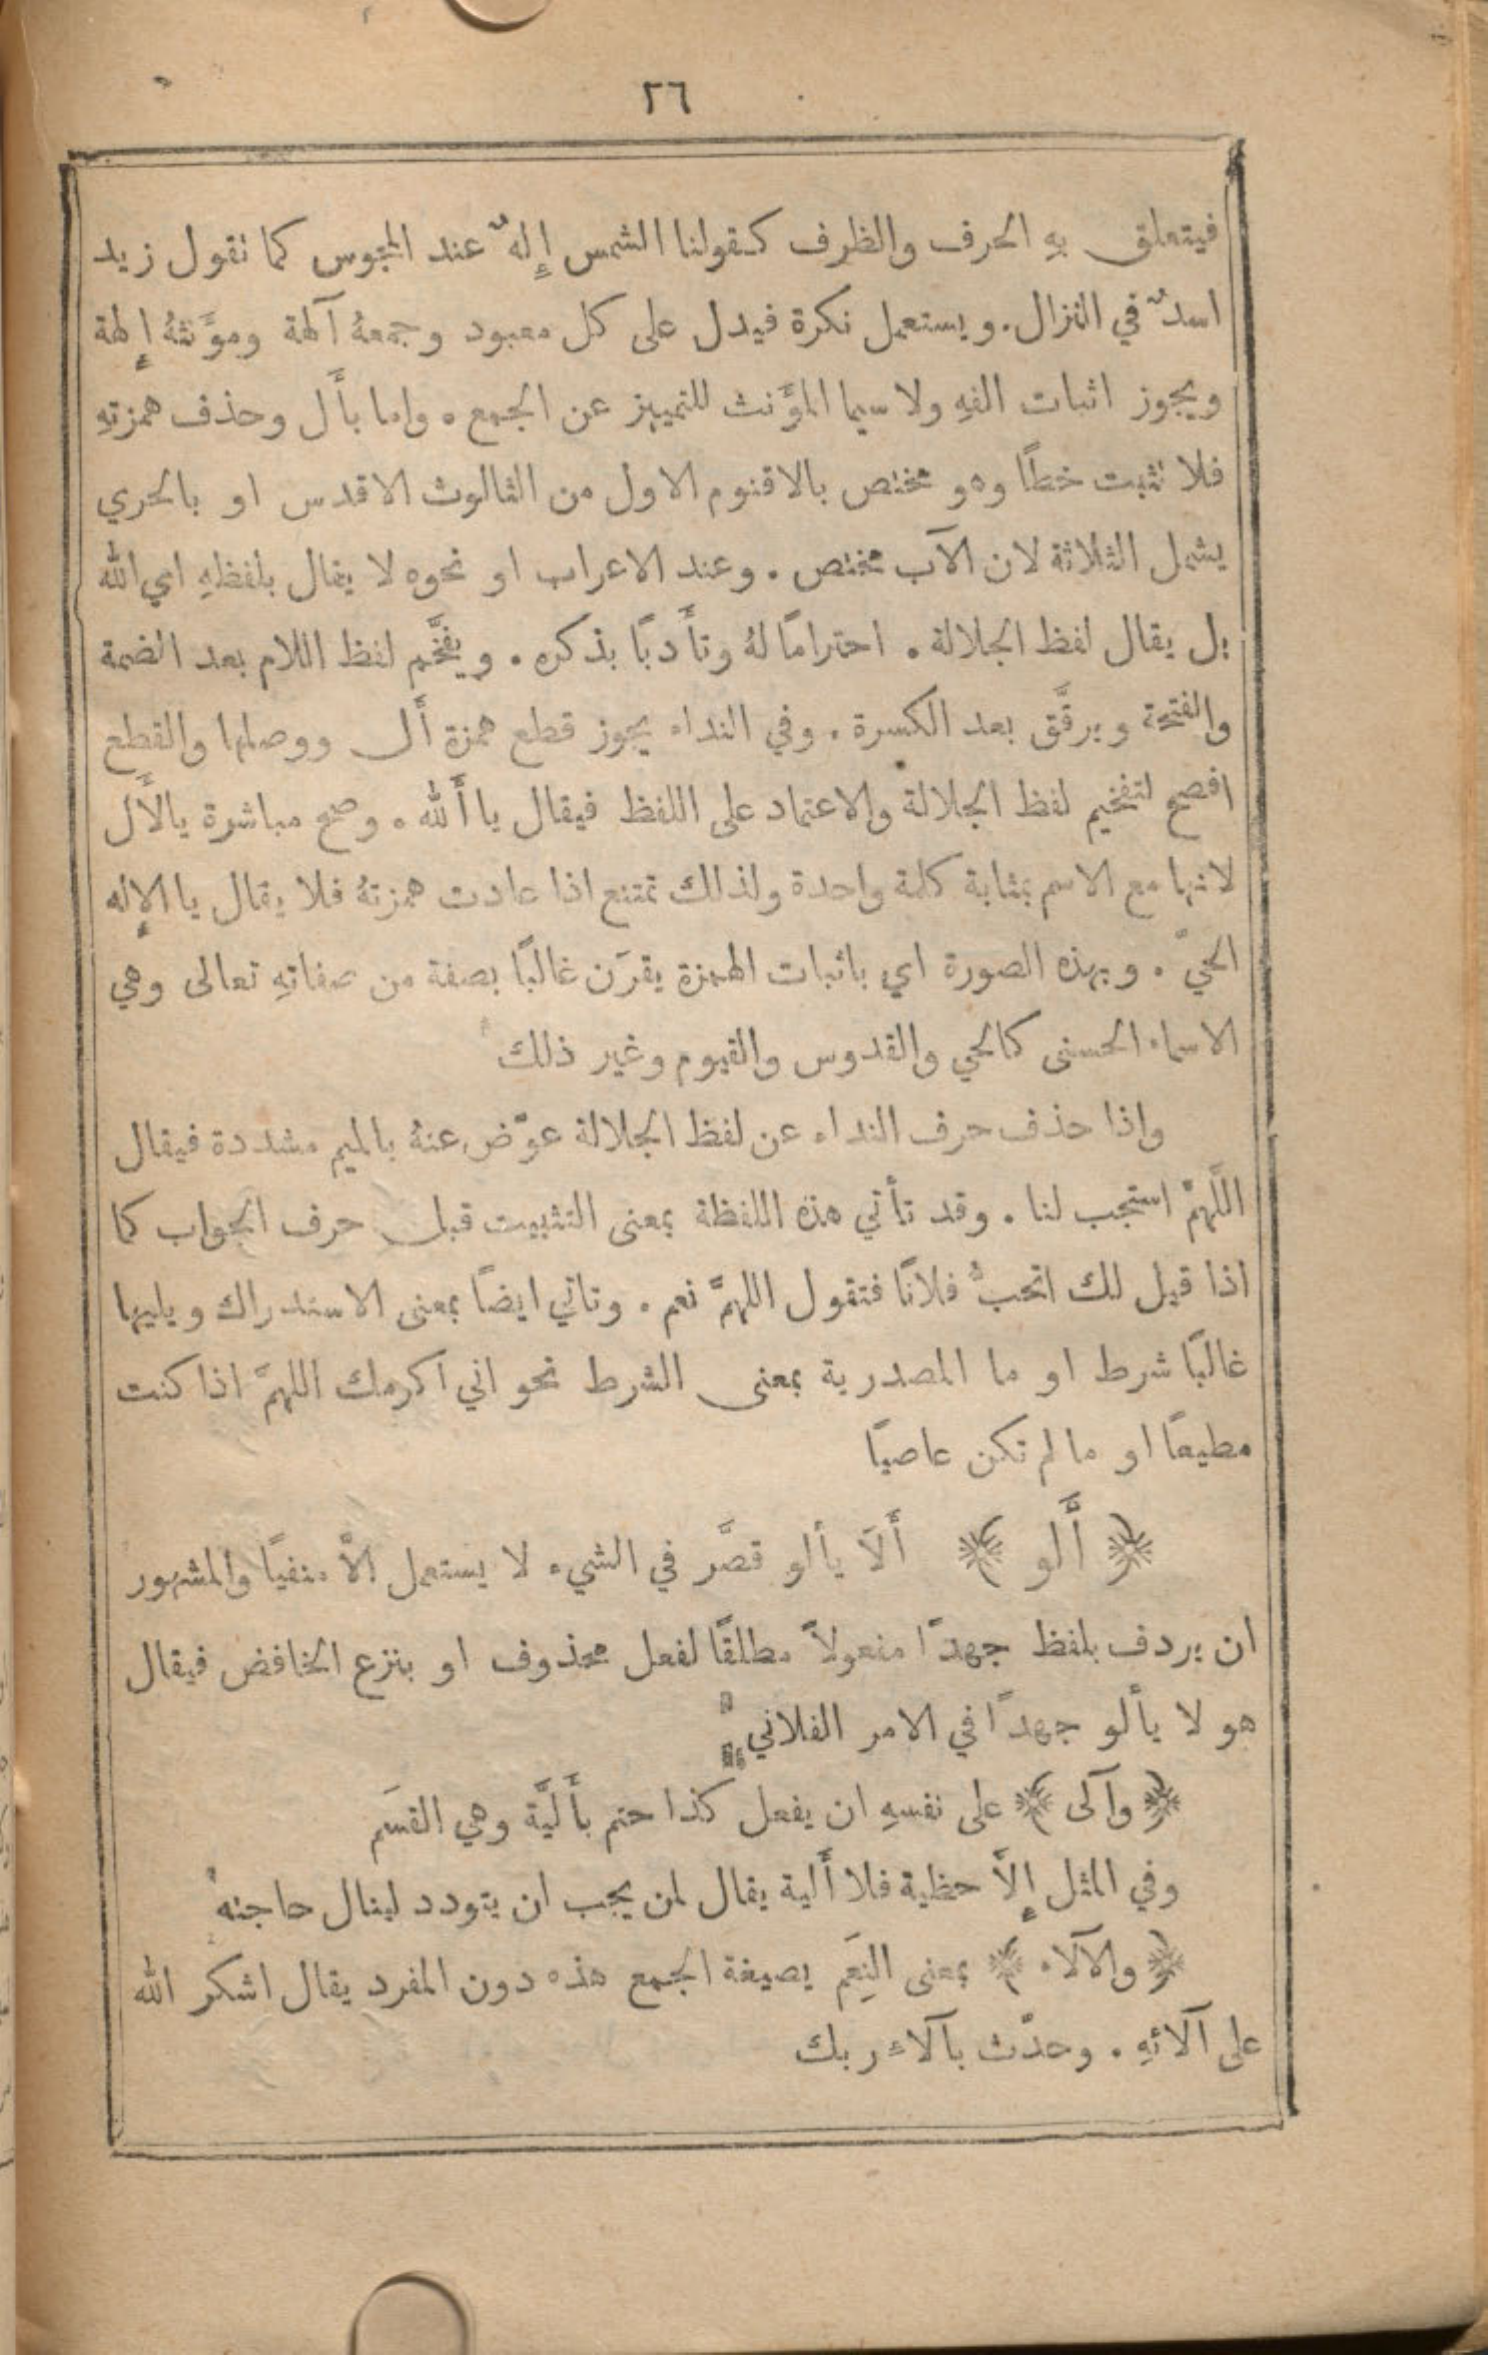 ٢٦
فيتعلق بهِ الحرف والظرف كقولنا الشمس إِلهٌ عند المجوس كما نقول زيد
اسدٌ في النزال. ويستعمل نكرة فيدل على كل معبود وجمعهُ آلهة ومؤَنثهُ إِلهة
ويجوز اثبات الفهِ ولا سيما المؤَنث للتمييز عن الجمع. واما بأَل وحذف همزتهِ
فلا نثبت خطًا وهو مختص بالاقنوم الاول من الثالوث الاقدس او بالحري
يشمل الثلاثة لان الآب مختص. وعند الاعراب او نحوه لا يقال بلفظهِ اي الله
بل يقال لفظ الجلالة. احترامًا لهُ وتأَدبًا بذكره. ويفخَّم لفظ اللام بعد الضمة
والفتحة ويرقَّق بعد الكسرة. وفي النداء يجوز قطع همزة أَل ووصلها والقطع
افصح لتفخيم لفظ الجلالة والاعتماد على اللفظ فيقال يا أَلله. وصح مباشرة يا لأَل
لانها مع الاسم بمثابة كلمة واحدة ولذالك تمتنع اذا عادت همزتهُ فلا يقال يا الإِله
الحيّ. وبهذه الصورة اي باثبات الهمزة يقرَن غالبًا بصفة من صفاتهِ تعالى وهي
الاسماء الحسنى كالحي والقدوس والقيوم وغير ذلك
واذا حذف حرف النداء عن لفظ الجلالة عوّض عنهُ بالميم مشددة فيقال
اللَّهمَّ استجب لنا. وقد تأتي هذه اللفظة بمعنى التثبيت قبل حرف الجواب كما
اذا قيل لك اتحبُّ فلانًا فتقول اللهمَّ نعم. وتاتي ايضًا بمعنى الاستدراك ويليها
غالبًا شرط او ما المصدرية بمعنى الشرط نحو اني اكرمك اللهمَّ اذا كنت
مطيعًا او ما لم تكن عاصيًا
﴿ أَلو ﴾ أَلاَ يألو قصَّر في الشيء لا يستعمل الاَّ منفيًا والمشهور
ان يردف بلفظ جهدًا مفعولاً مطلقًا لفعل محذوف او بنزع الخافض فيقال
هو لا يألو جهدًا في الامر الفلاني
﴿ وآلى ﴾ على نفسهِ ان يفعل كذا حتم بأَليَّة وهي القسَم
وفي المثل إِلاَّ حظية فلا أَلية يقال لمن يجب ان يتودد لينال حاجته
﴿ والآلاء ﴾ بمعنى النِعَم بصيغة الجمع هذه دون المفرد يقال اشكر الله
على آلائهِ. وحدّث بآلاء ربك